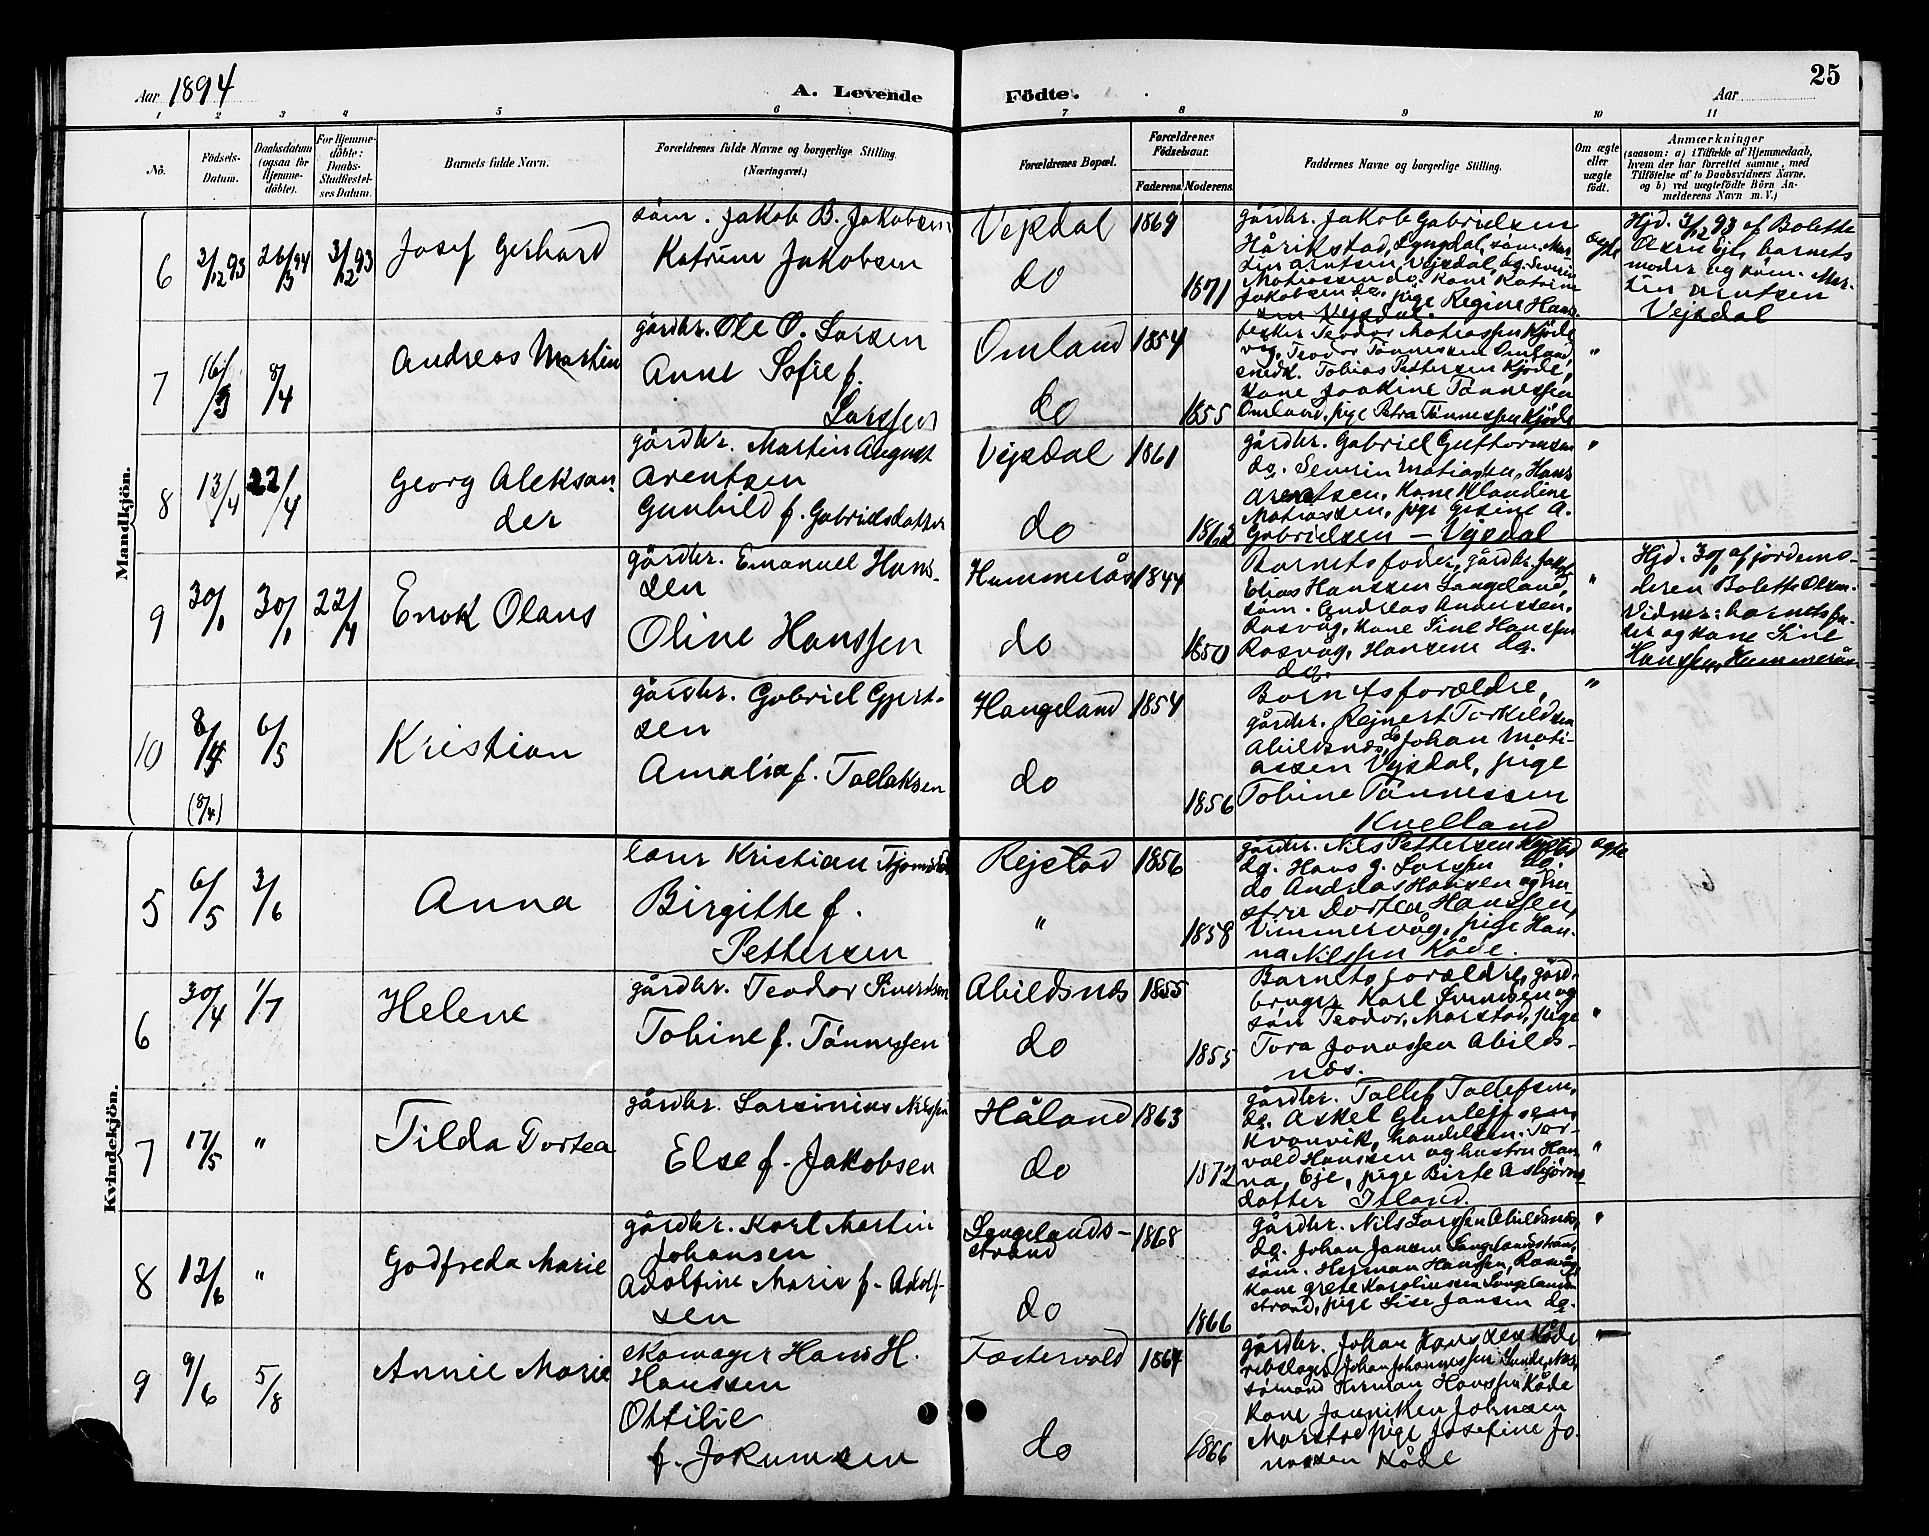 25
Aar 1894
A. Levende
Fødte.
Aar
1 2 3 4 5 6 7 8 9 10 11
No.
Fødsels-Datum.
Daabsdatum (ogsaa for Hjemmedøbte).
For Hjemmedøbte: Daabs-Stadfæstelses Datum.
Barnets fulde Navn.
Forældrenes fulde Navne og borgerlige Stilling. (Næringsvei.)
Forældrenes Bopæl.
Forældrenes Fødselsaar.
Faderens. Moderens.
Faddernes Navne og borgerlige Stilling.
Om ægte eller uægte født.
Anmærkninger
(saasom: a) i Tilfælde af Hjemmedaab,
hvem der har forrettet samme, med
Tilføielse af to Daabsvidners Navne.
og b) ved uægtefødte Børn An-
melderens Navn m. V.)
Mandkjøn.
6 2/12 93 26/3 94 3/12 93
Josef Gerhard
søm. Jakob B. Jakobsen
Katrine Jakobsen
Vejsdal 1869
do 1871
gårdbr. Jakob Gabrielsen
Hårikstad, Lyngdal, søm. Mar-
tin Arntsen, Vejsdal, dg. Severin
Matiassen do. Kone Katrine
Jakobsen do, pige Regine Han-
sen Vejsdal.
ægte
Hjd. 3/12 93 af Bolette
Olsen Eje, barnets
moder og søm. Mar-
tin Arntsen
Vejsdal
7 16/3 8/4
Andreas Martin
gårdbr. Ole O. Larsen
Anne Sofie f.
Larssen
Omland 1854
do 1855
Teodor Matiassen Kjøde
vig, Teodor Tønnessen Omland,
snedk. Tobias Pettersen Kjøde,
kone Joakine Tønnessen
Omland, pige Petra Tønnessen Kjøde
"
8 13/4 22/4
Georg Aleksan-
der
gårdbr. Martin August
Arentsen
Gunhild f. Gabrielsdatter
Vejsdal 1861
do 1862
gårdbr. Gabriel Guttormsen
dg. Severin Matiassen, Hans
Arentsen, Kone Klaudine
Matiassen, pige Gesine A.
Gabrielsen — Vejsdal
"
9 30/1 30/1 22/4
Enok Olaus
gårdbr. Emanuel Hans-
sen
Oline Hanssen
Hummerås 1844
do 1850
Barnets fader, gårdbr. Jakob
Elias Hanssen Langeland,
søm. Andreas Anderssen,
Rosvåg, Kone Sine Hanssen
Rosvåg, Hansine dg.
do.
"
Hjd. 30/1 af jordemo-
deren Bolette Olsen.
Vidner: barnets fa-
der og kone Sine
Hanssen, Hummerås
10 8/4 6/5
(8/4)
Kristian
gårdbr. Gabriel Gjert-
sen
Amalia f. Tollaksen
Haugeland 1854
do 1856
Barnets forældre,
gårdbr. Rejnert Torkildsen
Abildsnæs, do Johan Mati-
assen Vejsdal, pige
Tobine Tønnessen
Kvelland
"
Kvindekjøn.
5 6/5 3/6
Anna
Kristian
Birgitte f.
Pettersen
Rejstad 1856
" 1858
gårdbr. Nils Pettersen
dg. Hans G. Larssen do.
do Andreas Hansen og hu-
stru Dortea Hanssen,
Vimmervåg, pige Han-
na Nilssen Kåde.
ægte
6 30/4 1/7
Helene
gårdbr. Teodor Sivertsen
Tobine f. Tønnessen
Abildsnæs 1855
do 1855
Barnets forældre, gård-
bruger Karl Sivertsen og
søn Teodor, Marstad, pige
Tora Jonassen Abilds-
næs.
"
7 17/5 "
Tilda Dortea
gårdbr. Larsinius Nilssen
Else f. Jakobsen
Håland 1863
do 1872
gårdbr. Tollef Tollefsen,
dg. Askel Gunlejfsen,
Kvanvik, handelsm. Tor-
vald Hanssen og hustru Han-
na, Eje, pige Birte Asbjørns-
datter Itland.
"
8 12/6 "
Godfreda Marie
gårdbr. Karl Martin
Johansen
Adolfine Marie f. Adolf-
sen
Langelands-
strand 1868
do 1866
gårdbr. Nils Larssen Abildsnæs,
dg. Johan Jansen Langelandsstrand,
søm. Herman Hanssen, Rosvåg,
Kone Grete Karoliussen Langelands
strand, pige Lise Jansen dg.
"
9 9/6 5/8
Annie Marie
skomager Hans H.
Hanssen
Ottilie
f. Jokumsen
Fæstervold 1864
do 1866
gårdbr. Johan Hanssen Kåde
rebslager Johan Johannessen Sundenæs,
sømand Herman Hanssen Kåde
Kone Janniken Johnsen
Marstad pige Josefine Jo-
nassen Kåde
"